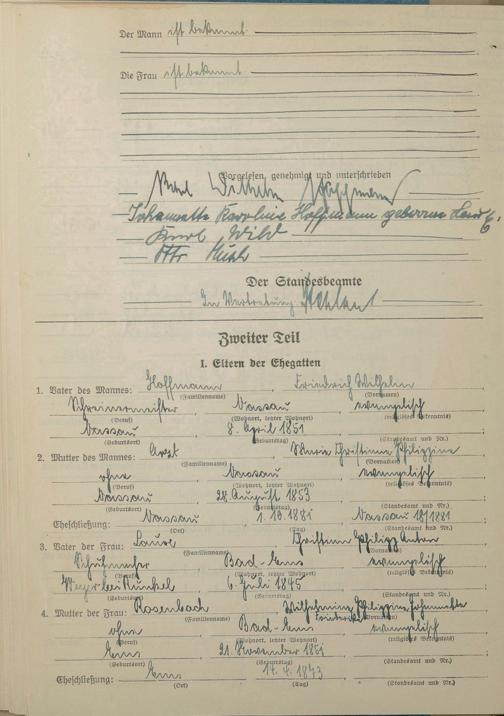 Der Mann ist bekannt
Die Frau ist bekannt
Vorgelesen, genehmigt und unterschrieben
Wilhelm Hoffmann
Johannette Karoline Hoffmann geborene
Karl Wild
Der Standesbeamte
In Vertretung:
Zweiter Teil
I. Eltern der Ehegatten
1. Vater des Mannes: Hoffmann, Friedrich Wilhelm
(Familienname) (Vornamen)
Schreinermeister, Nassau, evangelisch
(Beruf) (Wohnort, letzter Wohnort) (religiöses Bekenntnis)
Nassau, 8. April 1851
(Geburtsort) (Geburtstag) (Standesamt und Nr.)
2. Mutter des Mannes: Arzt, Maria Christiane Philippine
(Familienname) (Vornamen)
ohne, Nassau, evangelisch
(Beruf) (Wohnort, letzter Wohnort) (religiöses Bekenntnis)
Nassau, 28. August 1853
(Geburtsort) (Geburtstag) (Standesamt und Nr.)
Eheschließung: Nassau, 1. 10. 1881, Nassau 18/1881
(Ort) (Tag) (Standesamt und Nr.)
3. Vater der Frau: Christian Philipp Anton
(Familienname) (Vornamen)
Schuhmacher, Bad-Ems, evangelisch
(Beruf) (Wohnort, letzter Wohnort) (religiöses Bekenntnis)
Weyer bei Runkel, 6. Juli 1845
(Geburtsort) (Geburtstag) (Standesamt und Nr.)
4. Mutter der Frau: Rosenbach, Wilhelmine Philippine Johannette
(Familienname) Friederike (Vornamen)
ohne, Bad-Ems, evangelisch
(Beruf) (Wohnort, letzter Wohnort) (religiöses Bekenntnis)
Ems, 21. November 1851
(Geburtsort) (Geburtstag) (Standesamt und Nr.)
Eheschließung: Ems, 14. 4. 1873
(Ort) (Tag) (Standesamt und Nr.)